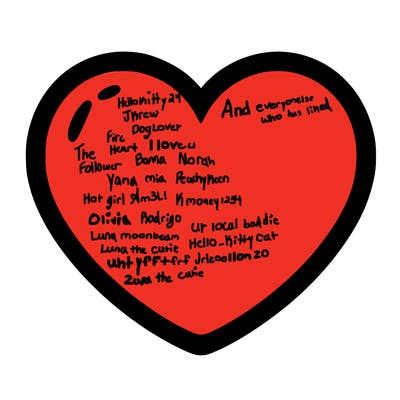 HelloKitty24
Jhrew
DogLover
Fire Heart I love u
The Follower Bama Norah
Yana mia PeachyMoon
Hot girl Kmoney1234
Olivia Rodrigo
Ur local baddie
Luna moonbeam
Luna the cutie Hello_Kitty Cat
Zara the cutie
And everyone else
who has liked